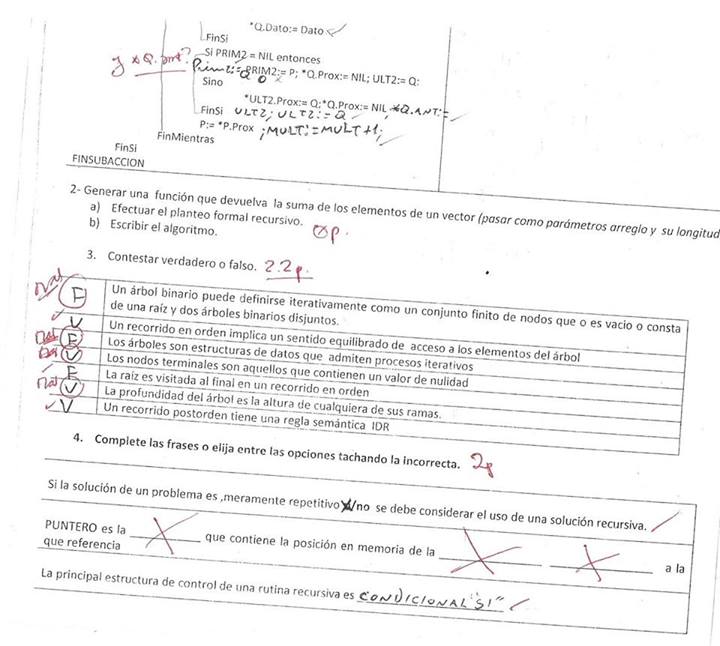 *Q.Dato:= Dato
FinSi
Si PRIM2 = NIL entonces
y *Q.ant?
PRIM2:= P; *Q.Prox:= NIL; ULT2:= Q:
Sino
*ULT2.Prox:= Q;*Q.Prox:= NIL *Q.ANT:=
FinSi ULT2; ULT2:= Q
P:= *P.Prox ;MULT:=MULT+1;
FinMientras
FinSi
FINSUBACCION
2- Generar una función que devuelva la suma de los elementos de un vector (pasar como parámetros arreglo y su longitud
a) Efectuar el planteo formal recursivo.
b) Escribir el algoritmo.
3. Contestar verdadero o falso. 2.2p.
mal F Un árbol binario puede definirse iterativamente como un conjunto finito de nodos que o es vacio o consta
de una raíz y dos árboles binarios disjuntos.
V Un recorrido en orden implica un sentido equilibrado de acceso a los elementos del árbol
F Los árboles son estructuras de datos que admiten procesos iterativos
V Los nodos terminales son aquellos que contienen un valor de nulidad
F La raíz es visitada al final en un recorrido en orden
V La profundidad del árbol es la altura de cualquiera de sus ramas.
V Un recorrido postorden tiene una regla semántica IDR
4. Complete las frases o elija entre las opciones tachando la incorrecta. 2p
Si la solución de un problema es ,meramente repetitivo /no se debe considerar el uso de una solución recursiva.
PUNTERO es la que contiene la posición en memoria de la a la
que referencia
La principal estructura de control de una rutina recursiva es CONDICIONAL "SI"